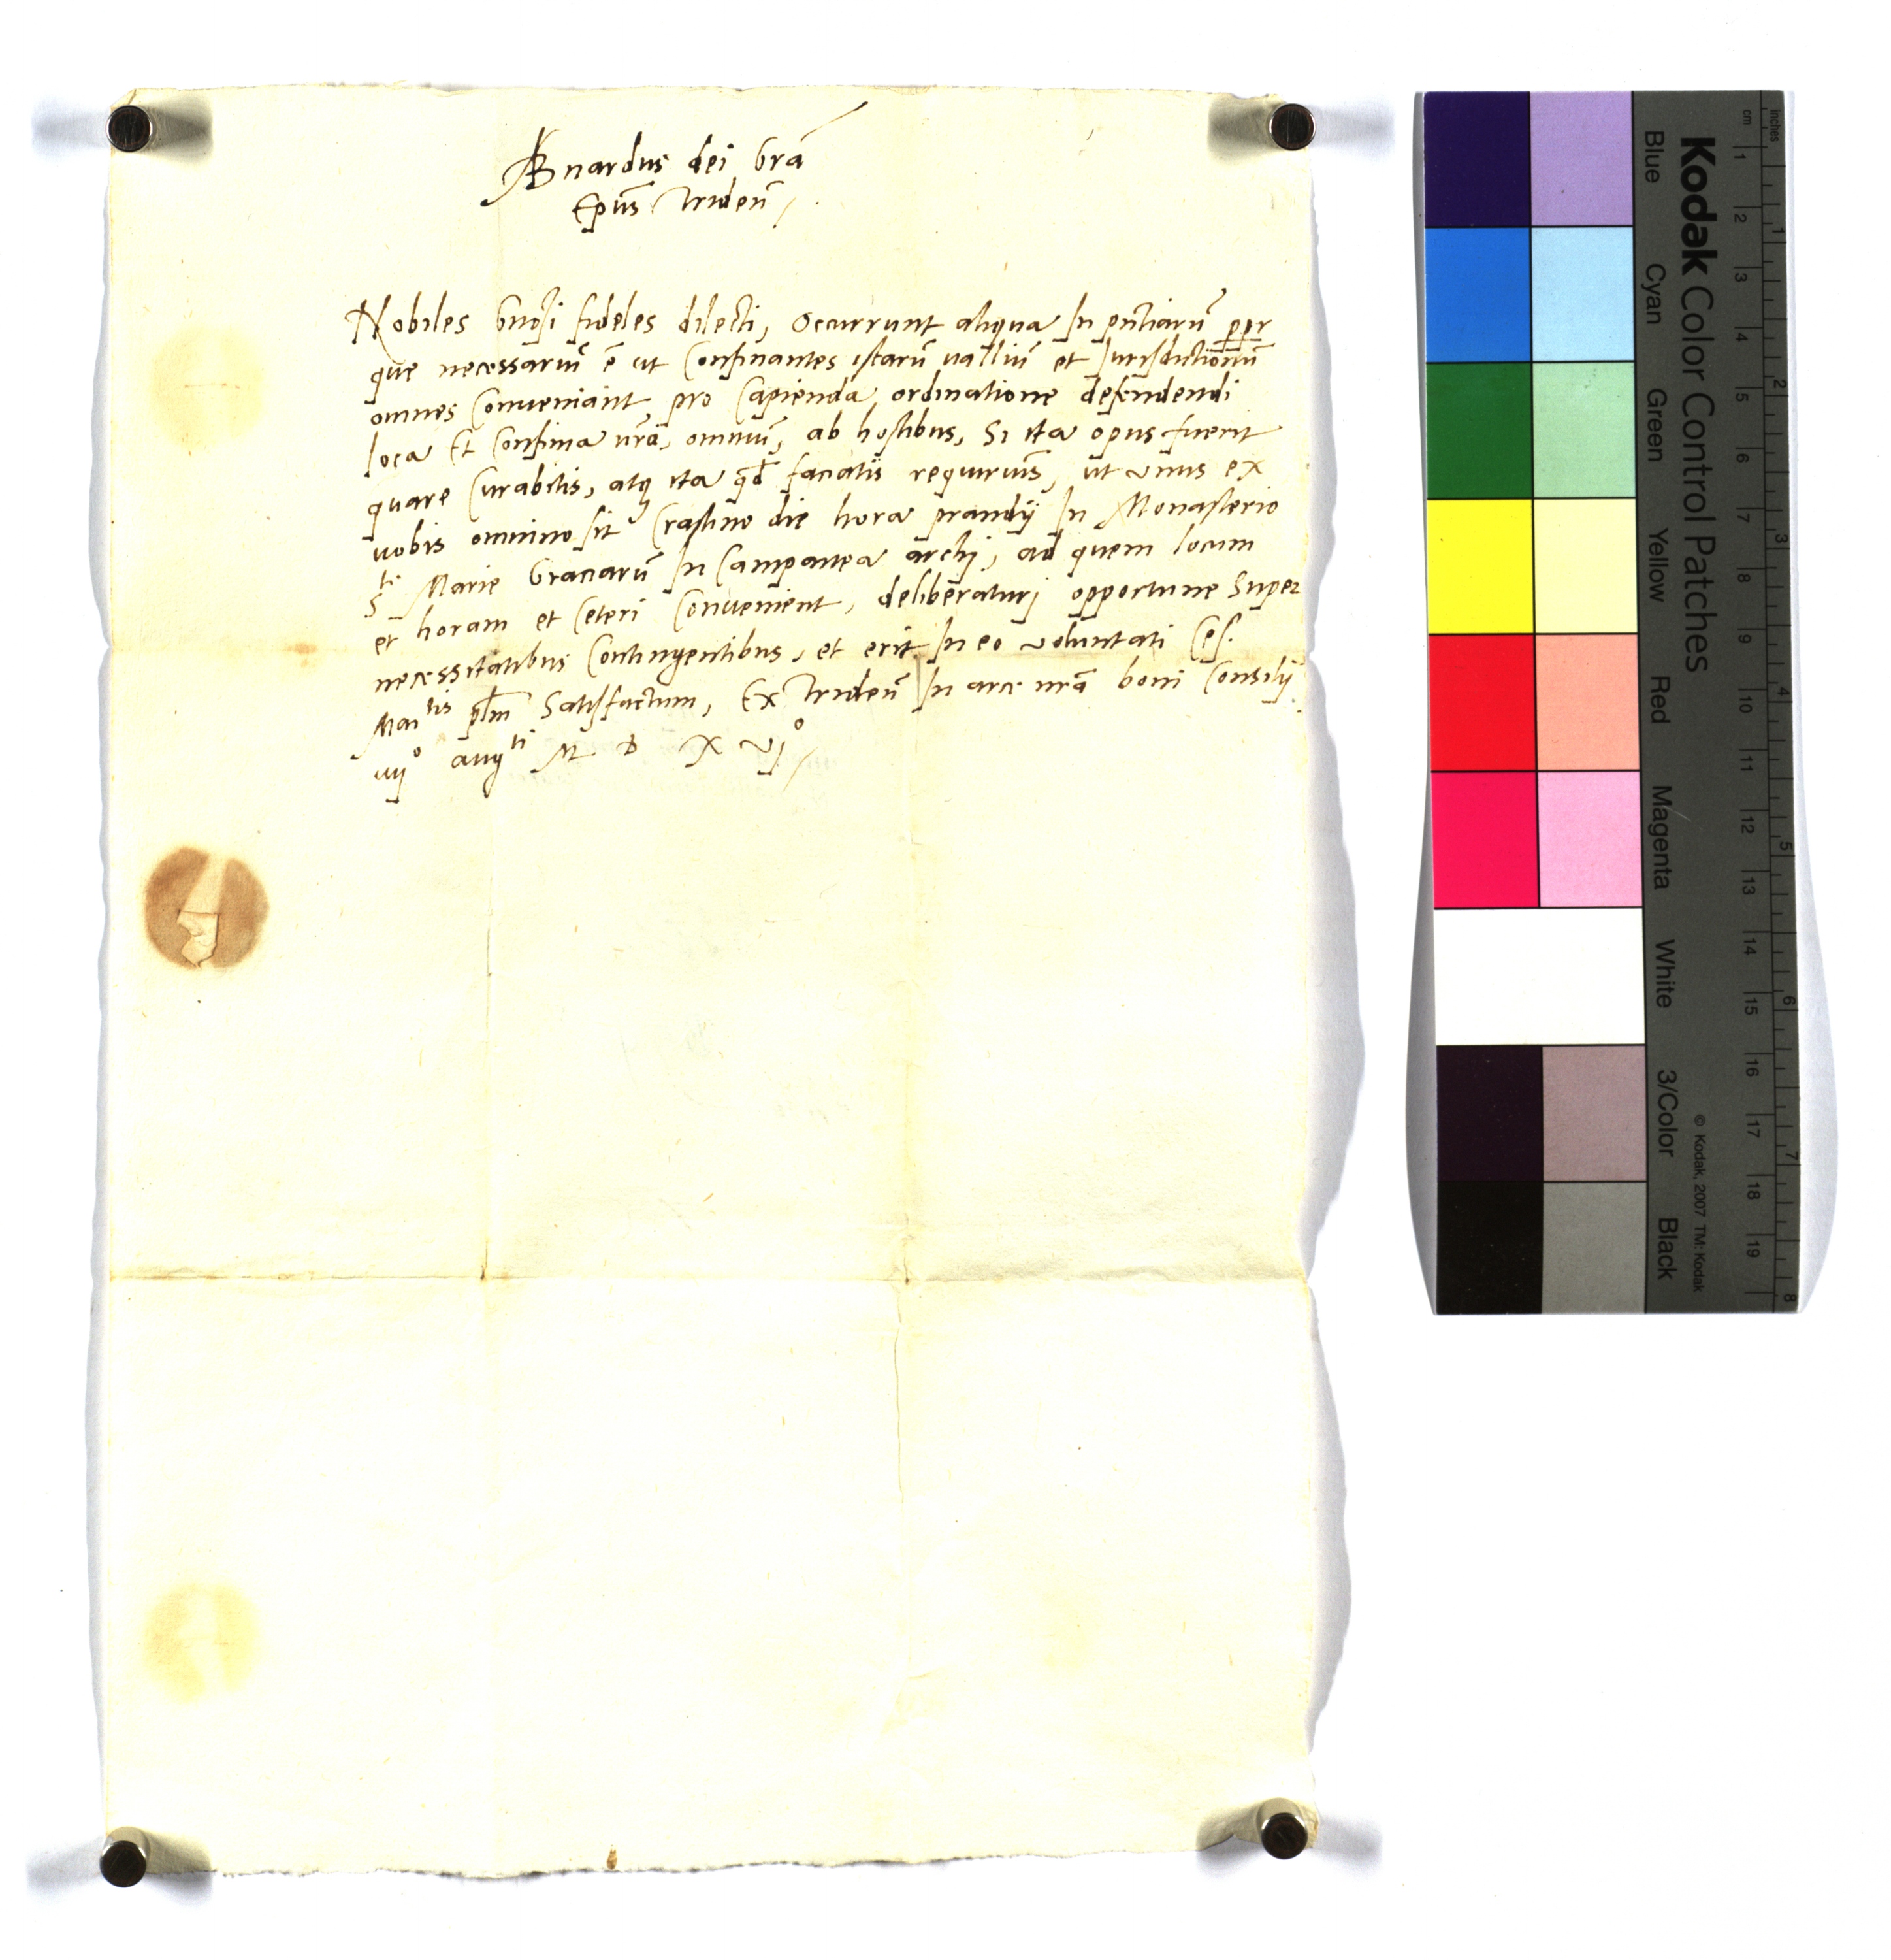 Bnardus dei grã
Epũs Tridenʒ̃
Nobiles gnosi fideles dilecti, Occurrunt aliqua In pñtiarũ
que necessariũ ẽ ut Confinantes istarũ valliũ et Jurisdictionũ
omnes Conueniant, pro Capienda ordinatione defendendi
loca Et Confina nr̃a, omniũ, ab hostibus, Si ita opus fuerit
quare Curabitis, atq ita qd faciatis requirim̃s, ut vnus ex
uobis omnino sit Crastino die hora prandij In Monasterio
Sti Marie Graciarũ In Campanea archj, ad quem locum
et horam et Ceteri Conuenient, deliberaturj opportune Super
necessitatibus Contingentibus, et erit In eo voluntati Ces.
Maitis plm Satisfactum, Ex Tridenʒ̃ In arce nr̃a boni Consilij
vijo augti M D X vjo
Kodak Color Control Patches
Blue Cyan Green Yellow Red Magenta White 3/Color Black
© Kodak, 2007 TM: Kodak
cm 1 2 3 4 5 6 7 8 9 10 11 12 13 14 15 16 17 18 19
inches 1 2 3 4 5 6 7 8